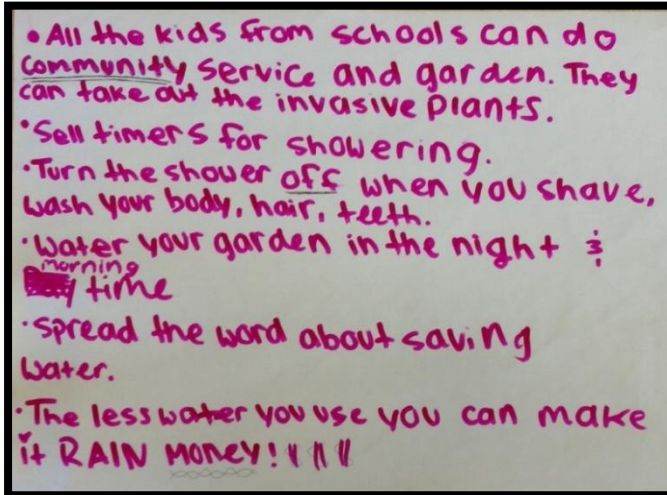 • All the kids from schools can do
community service and garden. They
can take out the invasive plants.
• Sell timers for showering.
• Turn the shower off when you shave,
wash your body, hair, teeth.
• Water your garden in the night &
morning
time
• Spread the word about saving
water.
• The less water you use you can make
it RAIN MONEY! ! ! !